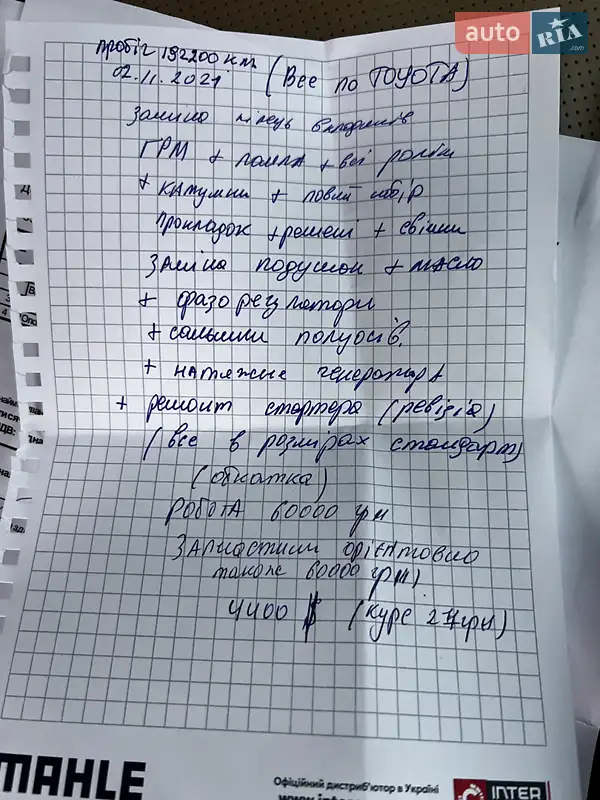 auto RIA .com
пробіг 192200 км
02.11.2021 (Все по TOYOTA)
Заміна кілець вкладишів
ГРМ + помпа + всі роліки
+ катушки + повний набір
прокладок + ремені + свічки
Заміна подушок + масло
+ фазорегулятори
+ сальники полуосів.
+ натяжне генератора
+ ремонт стартера (ревізія)
(все в розмірах стандарт)
(обкатка)
робота 60000 грн
Запчастини орієнтовно
також 60000 грн)
4400 $ (курс 27грн)
MAHLE
Офіційний дистриб'ютор в Україні
INTER